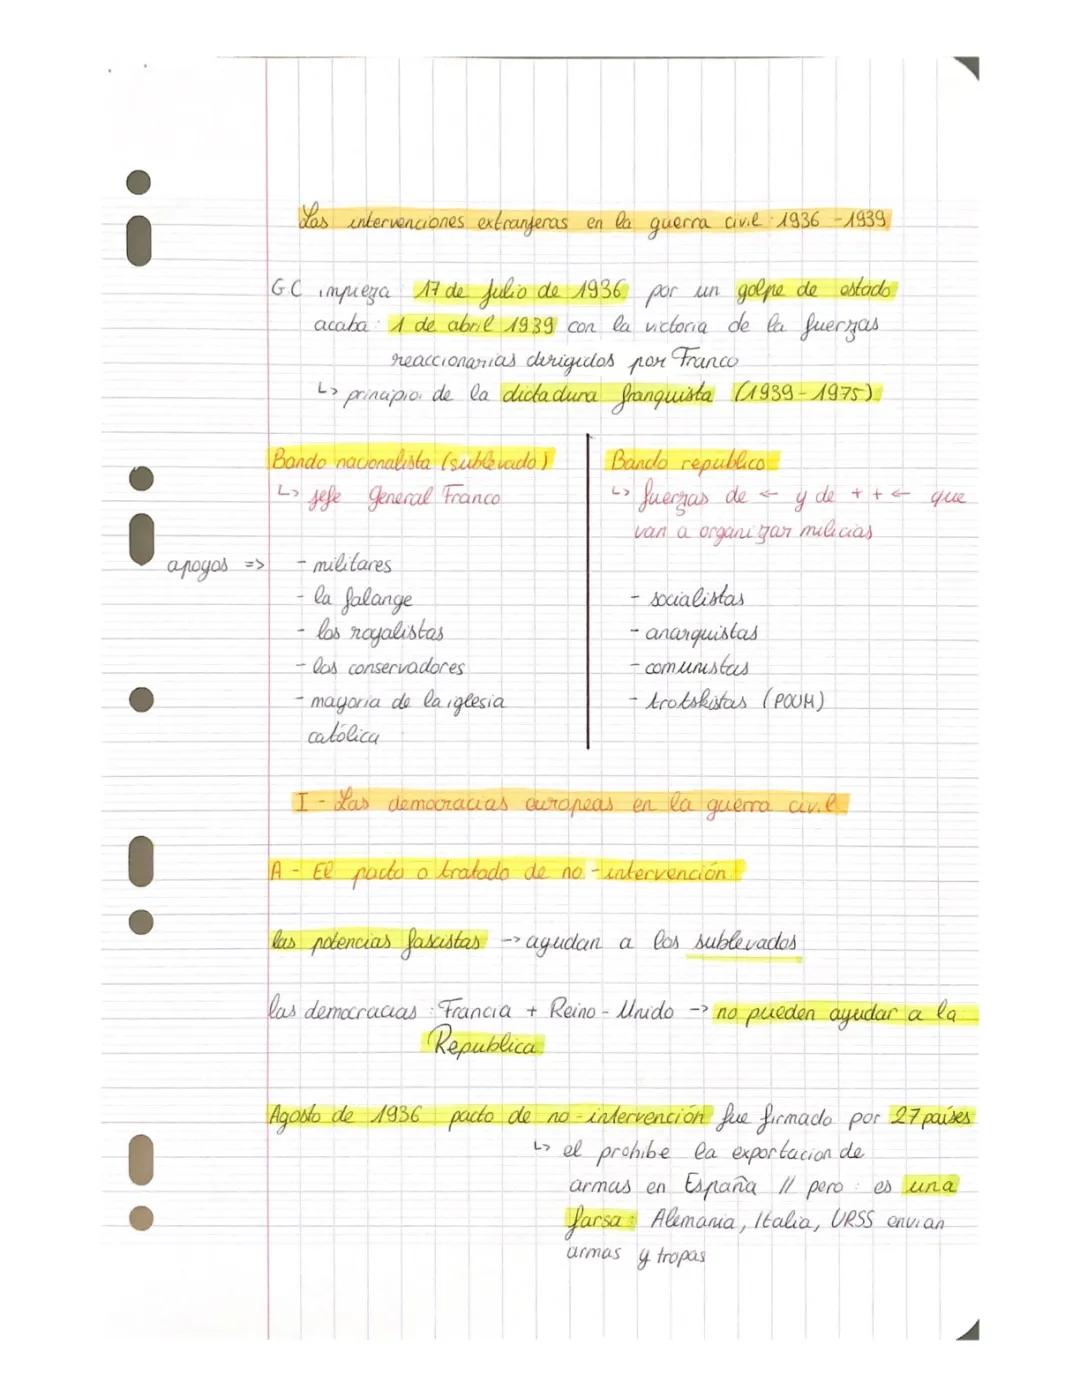 Las intervenciones extranjeras en la guerra civil : 1936 - 1939
GC impieza 17 de julio de 1936 por un golpe de estado
acaba : 1 de abril 1939 con la victoria de la fuerzas
reaccionarias dirigidos por Franco
↳ principio de la dictadura franquista (1939 - 1975)
Bando nacionalista (sublevado)
↳ jefe General Franco
apoyos => - militares
- la falange
- los royalistas
- los conservadores
- mayoria de la iglesia
católica
Bando republico
↳ fuerzas de ← y de + + ← que
van a organizar milicias
- socialistas
- anarquistas
- comunistas
- trotskistas (POUM)
I - Las democracias europeas en la guerra civil
A - El pacto o tratado de no - intervención
las potencias fascistas -> ayudan a los sublevados
las democracias : Francia + Reino - Unido -> no pueden ayudar a la
Republica
Agosto de 1936 pacto de no - intervención fue firmado por 27 países
↳ el prohibe la exportacion de
armas en España // pero : es una
farsa : Alemania, Italia, URSS envian
armas y tropas